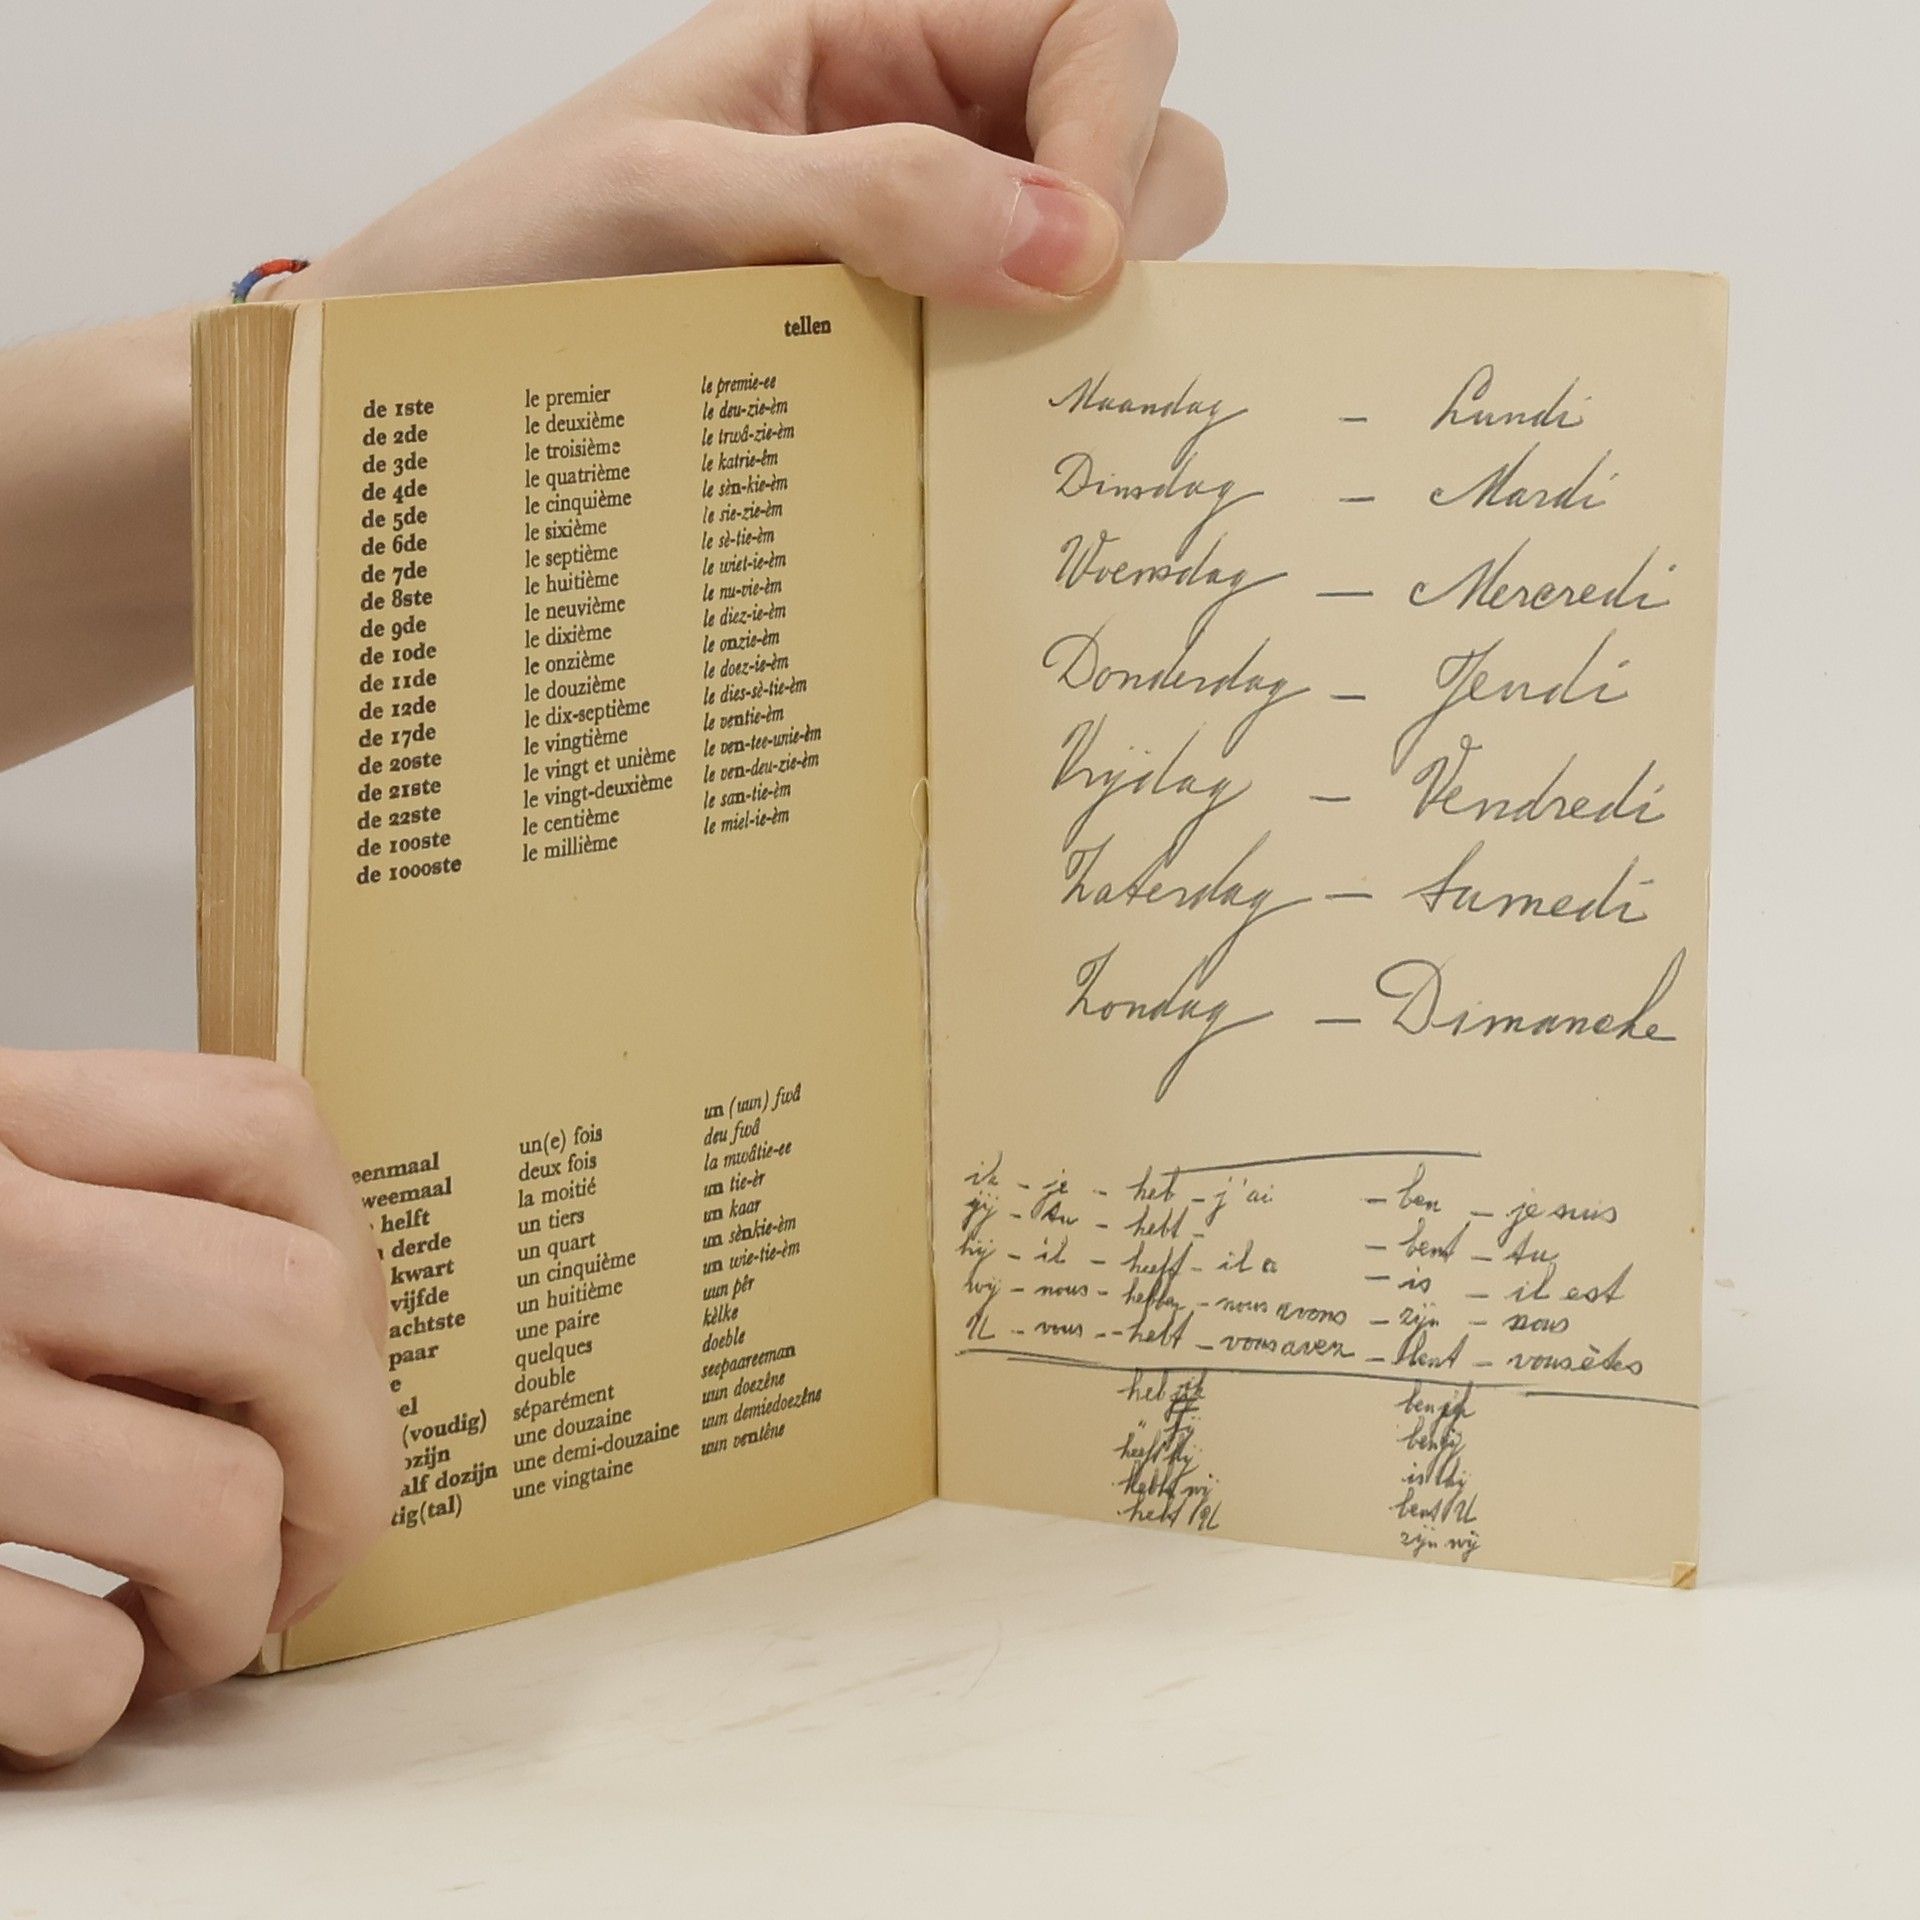 tellen
de 1ste le premier le premie-ee
de 2de le deuxième le deu-zie-èm
de 3de le troisième le trwâ-zie-èm
de 4de le quatrième le katrie-êm
de 5de le cinquième le sèn-kie-èm
de 6de le sixième le sie-zie-èm
de 7de le septième le sè-tie-èm
de 8ste le huitième le wiet-ie-èm
de 9de le neuvième le nu-vie-èm
de 10de le dixième le diez-ie-èm
de 11de le onzième le onzie-èm
de 12de le douzième le doez-ie-èm
de 17de le dix-septième le dies-sè-tie-èm
de 20ste le vingtième le ventie-èm
de 21ste le vingt et unième le ven-tee-unie-èm
de 22ste le vingt-deuxième le ven-deu-zie-èm
de 100ste le centième le san-tie-èm
de 1000ste le millième le miel-ie-èm
eenmaal un(e) fois un (uun) fwâ
weemaal deux fois deu fwâ
helft la moitié la mwâtie-ee
derde un tiers un tie-èr
kwart un quart un kaar
vijfde un cinquième un sènkie-èm
achtste un huitième un wie-tie-èm
paar une paire uun pêr
e quelques kèlke
el double doeble
(voudig) séparément seepaareeman
ozijn une douzaine uun doezêne
alf dozijn une demi-douzaine uun demiedoezêne
tig(tal) une vingtaine uun ventêne
Maandag — Lundi
Dinsdag — Mardi
Woensdag — Mercredi
Donderdag — Jeudi
Vrijdag — Vendredi
Zaterdag — Samedi
Zondag — Dimanche
ik - je - heb - j'ai - ben - je suis
gij - tu - hebt - - bent - tu
hij - il - heeft - il a - is - il est
wij - nous - hebben - nous avons - zijn - nous
U - vous - hebt - vous avez - bent - vous êtes
heb ik ben ik
" gij ben gij
heeft hij is hij
hebt wij bent U
hebt U zijn wij